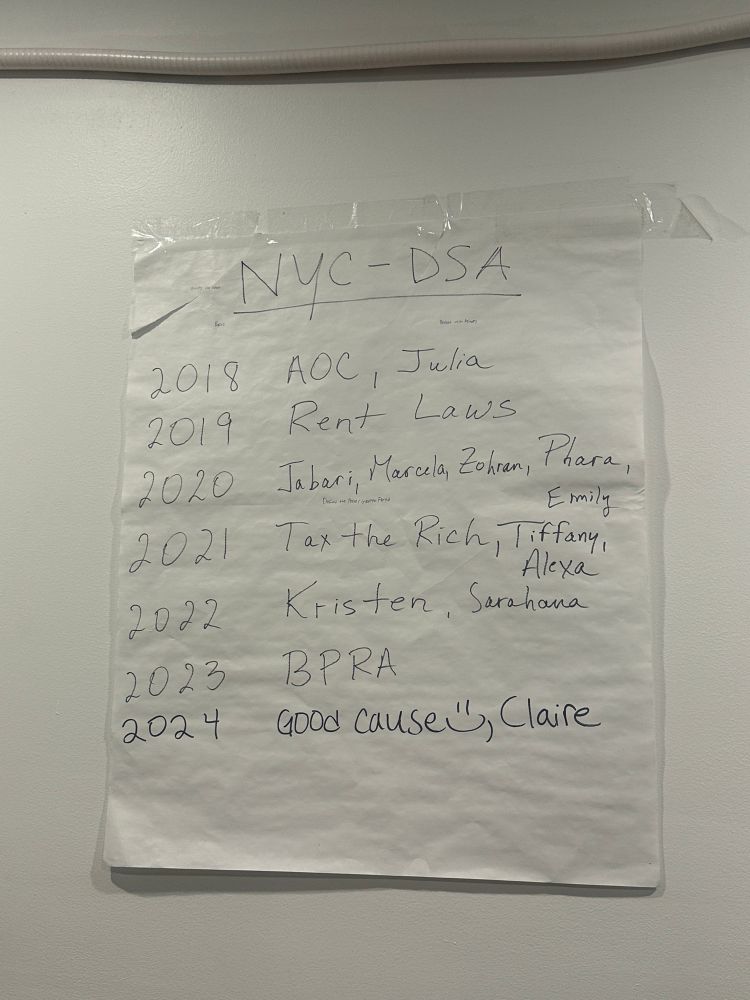 NYC-DSA
2018 AOC, Julia
2019 Rent Laws
2020 Jabari, Marcela, Zohran, Phara,
Emily
2021 Tax the Rich, Tiffany,
Alexa
2022 Kristen, Sarahana
2023 BPRA
2024 GOOD CAUSE, Claire